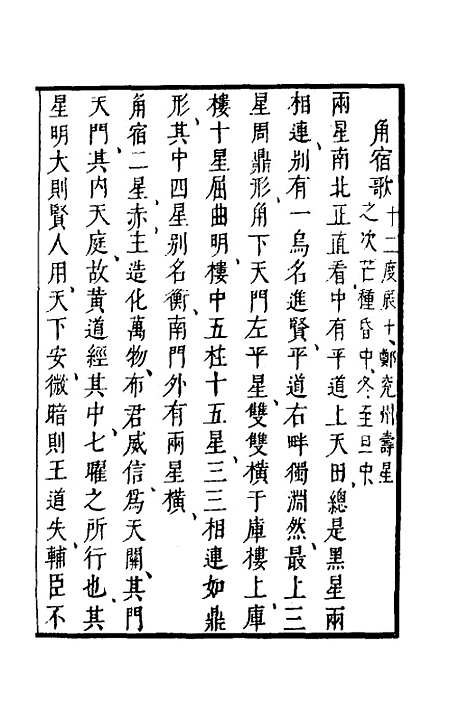 角宿歌 十二度辰十鄭兗州壽星
之次芒種昏中冬至旦中
兩星南北正直看中有平道上天田總是黑星兩
相連別有一烏名進賢平道右畔獨淵然最上三
星周鼎形角下天門左平星雙雙橫于庫樓上庫
樓十星屈曲明樓中五柱十五星三三相連如鼎
形其中四星别名衡南門外有兩星橫
角宿二星赤主造化萬物布君威信爲天關其門
天門其内天庭故黄道經其中七曜之所行也其
星明大則賢人用天下安微暗則王道失輔臣不